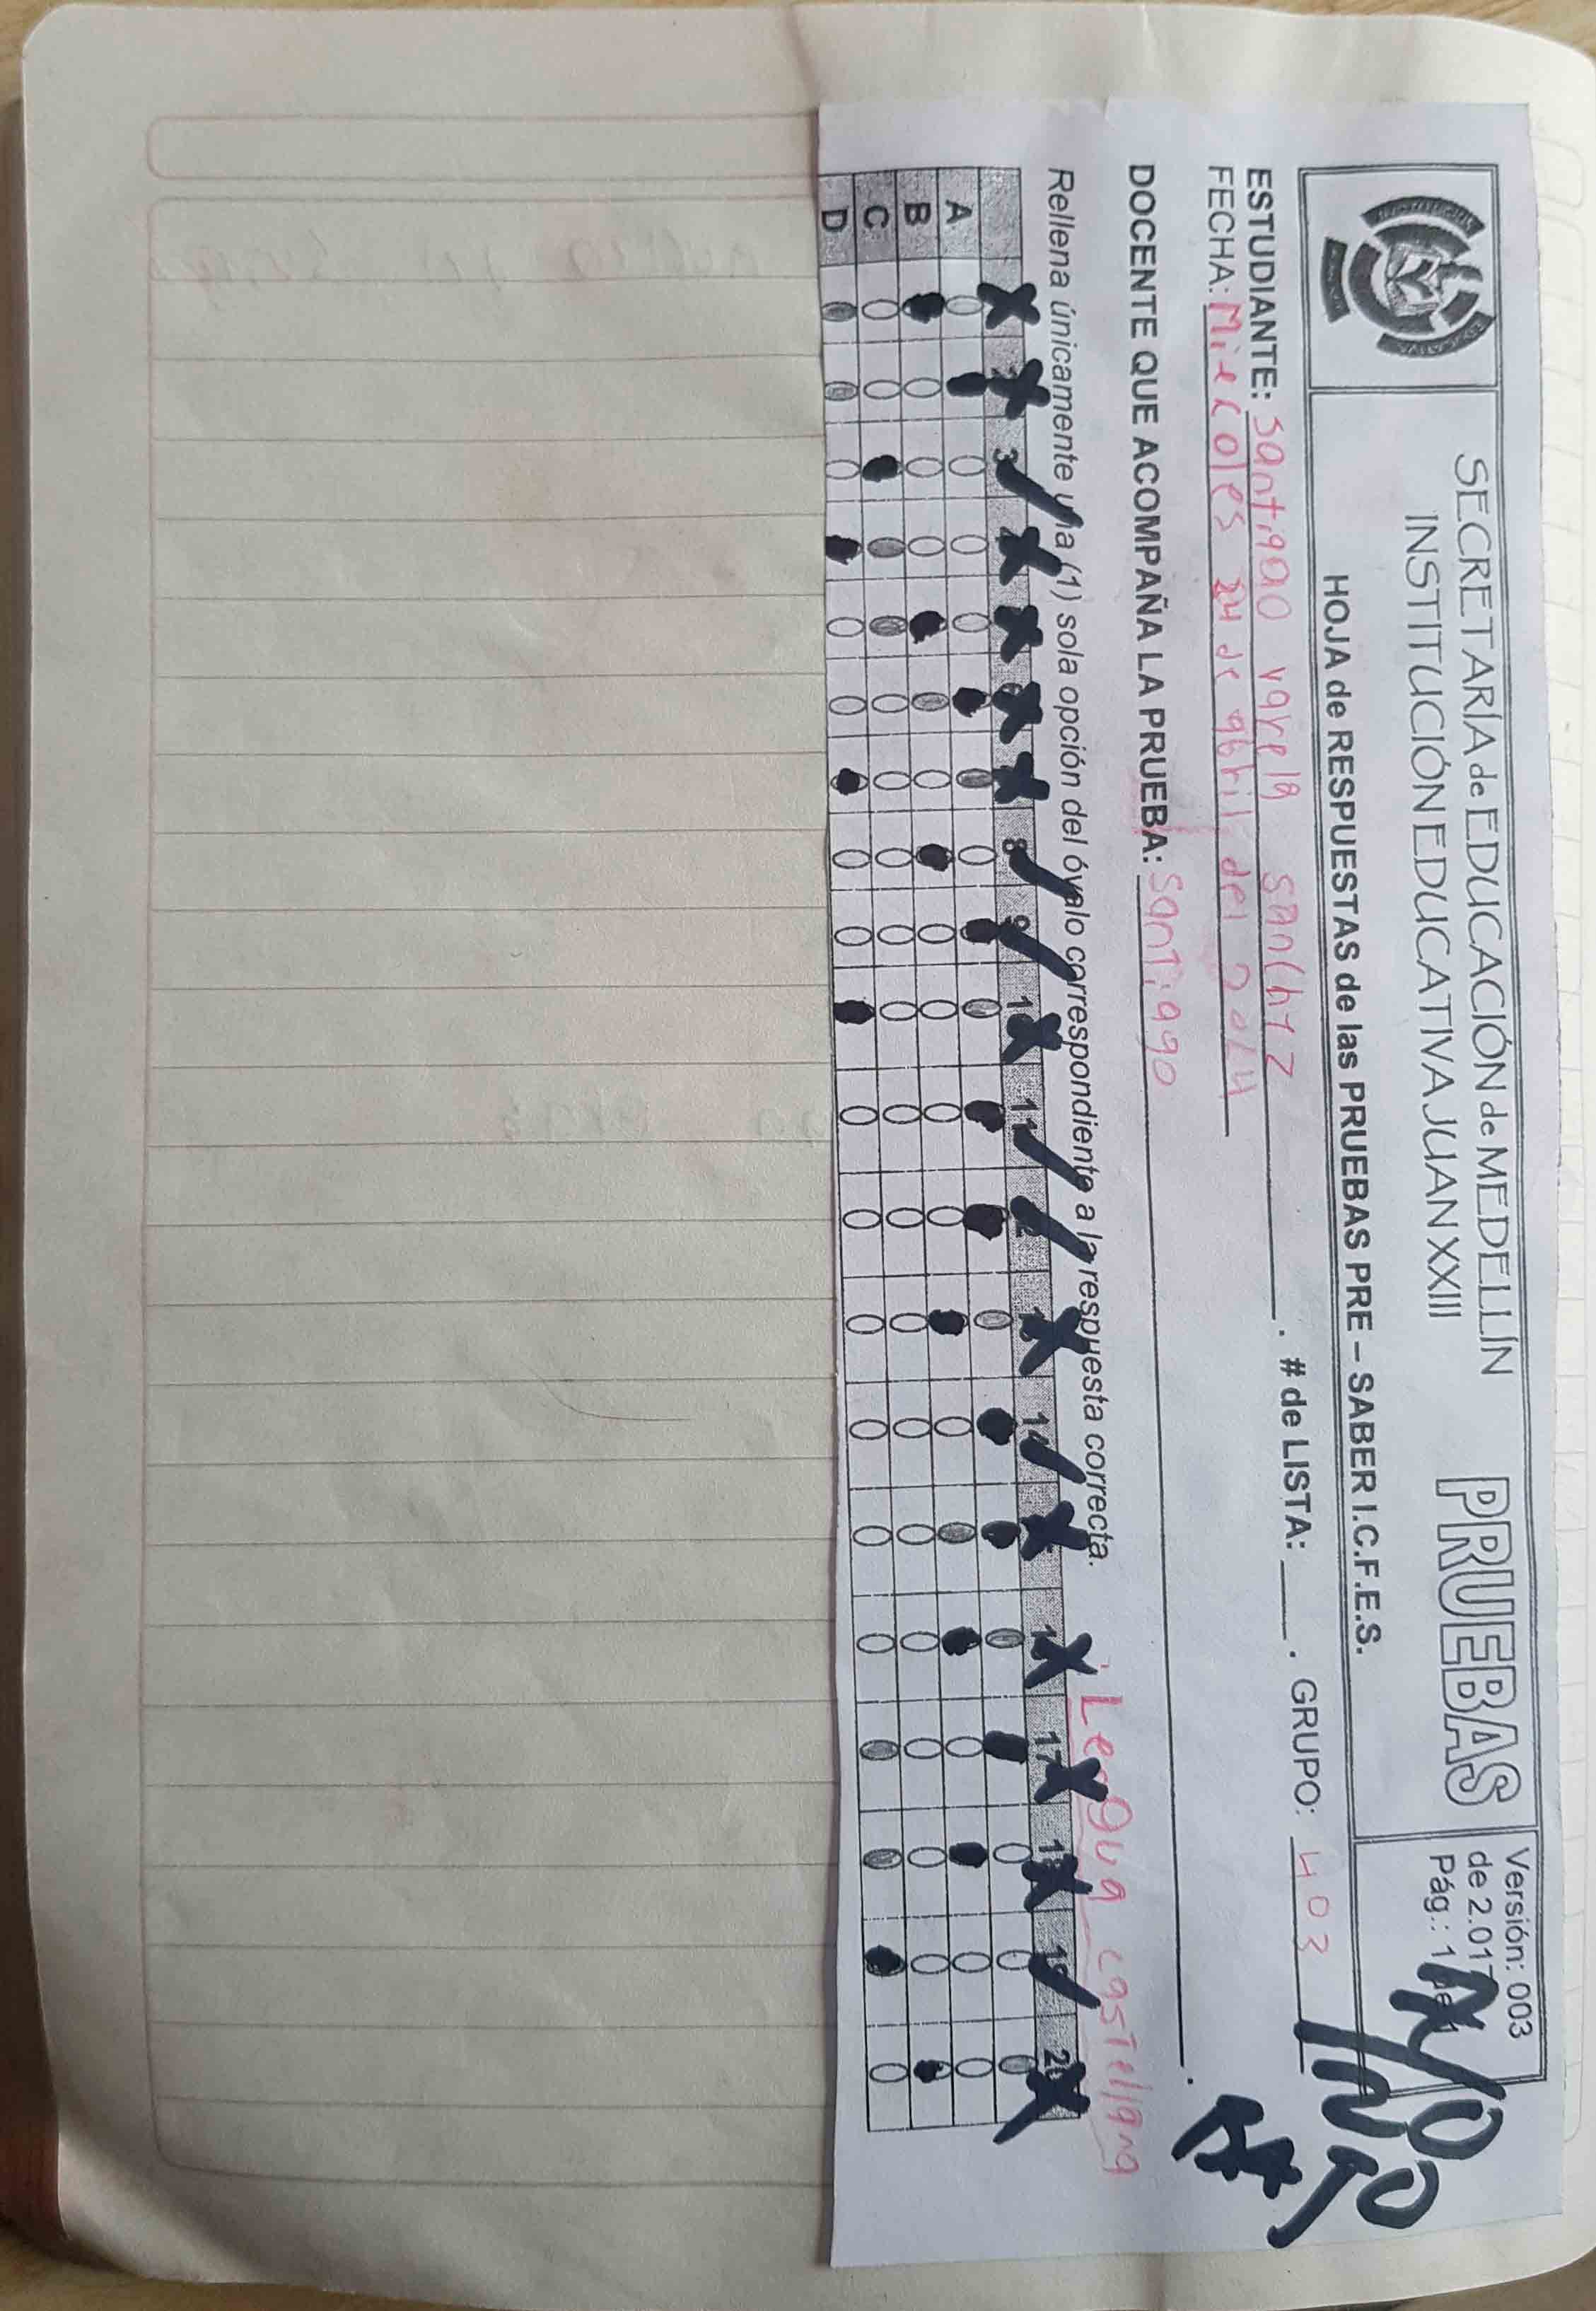 SECRETARÍA de EDUCACIÓN de MEDELLÍN
INSTITUCIÓN EDUCATIVA JUAN XXIII
PRUEBAS
Versión: 003
de 2.017
Pág.: 1 de 1
HOJA de RESPUESTAS de las PRUEBAS PRE – SABER I.C.F.E.S.
7/20
BAJO
ESTUDIANTE: Santiago varela sanchez . # de LISTA: ____ . GRUPO: 403
FECHA: Miercoles 24 de abril del 2024
DOCENTE QUE ACOMPAÑA LA PRUEBA: Santiago .
Rellena únicamente una (1) sola opción del óvalo correspondiente a la respuesta correcta.
Lengua castellana
3 8 9 11 14 17
A
B
C
D